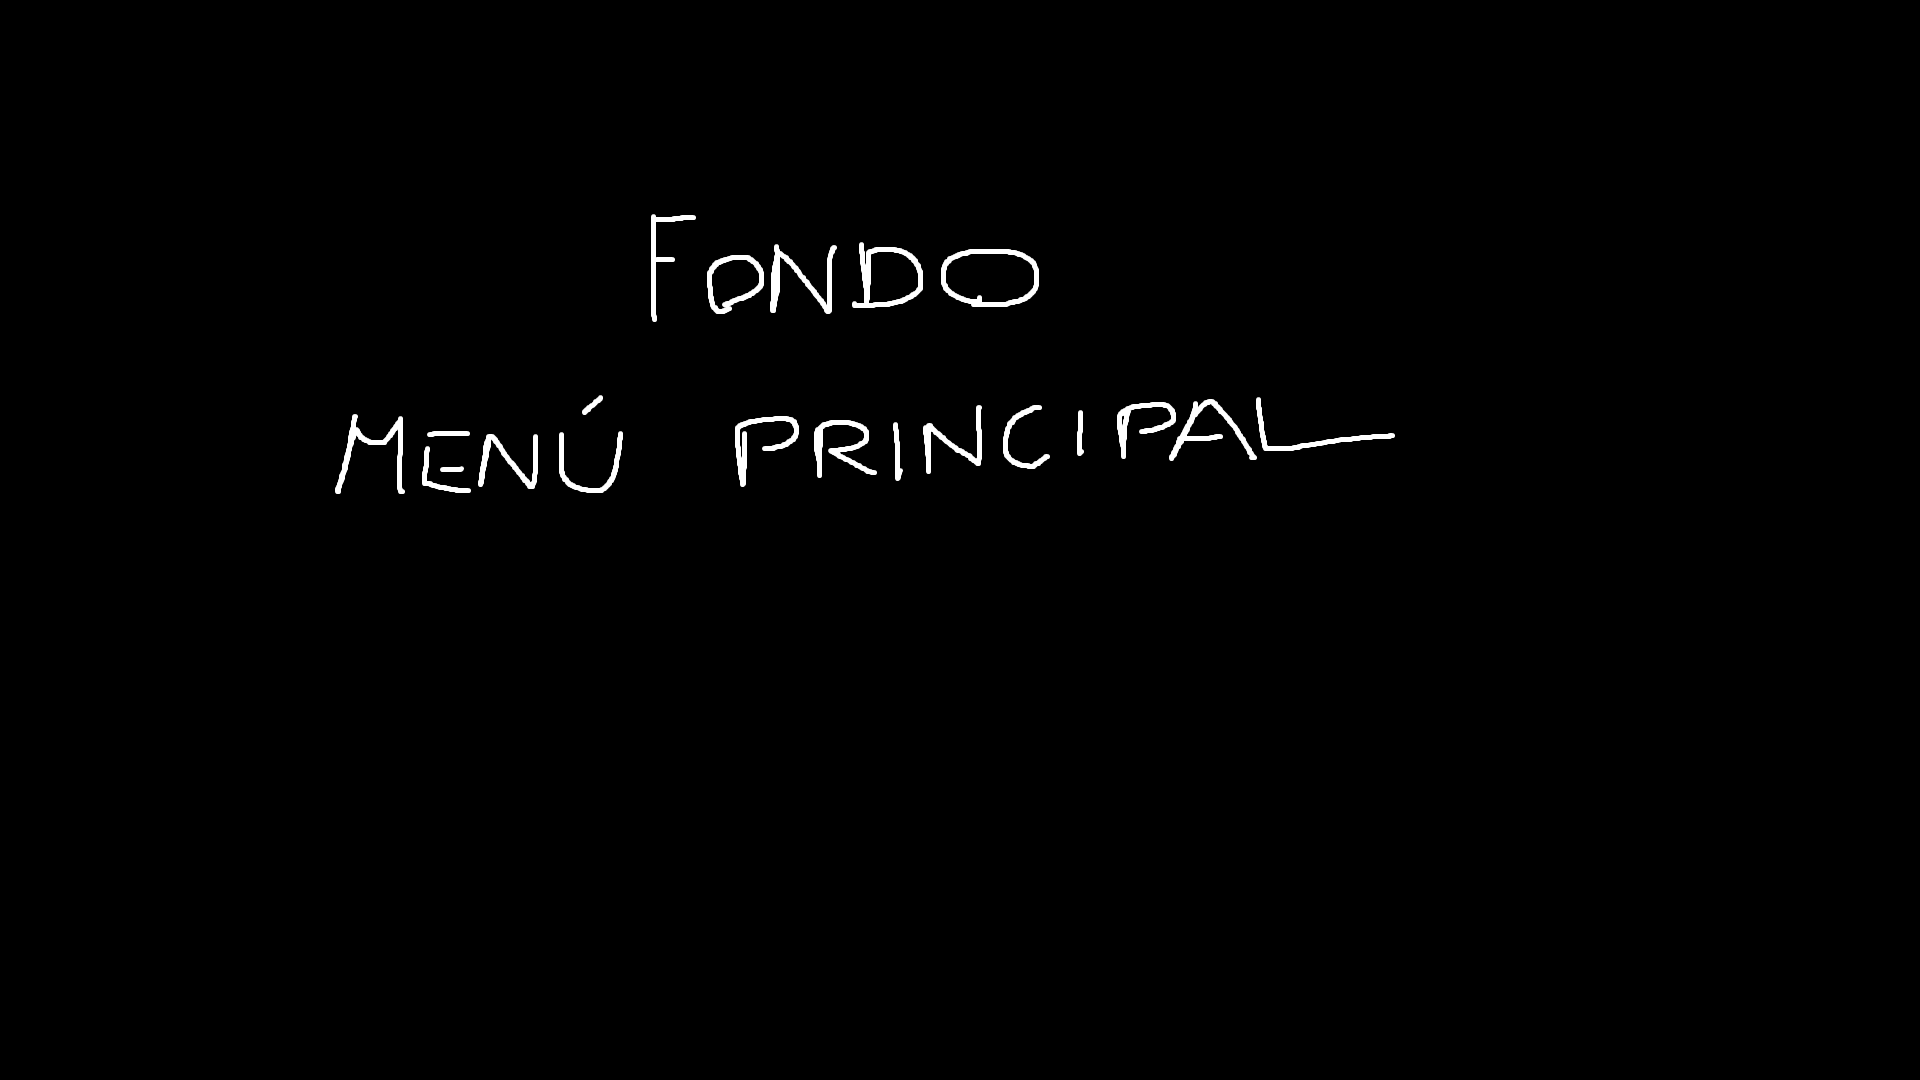 FONDO
MENÚ PRINCIPAL